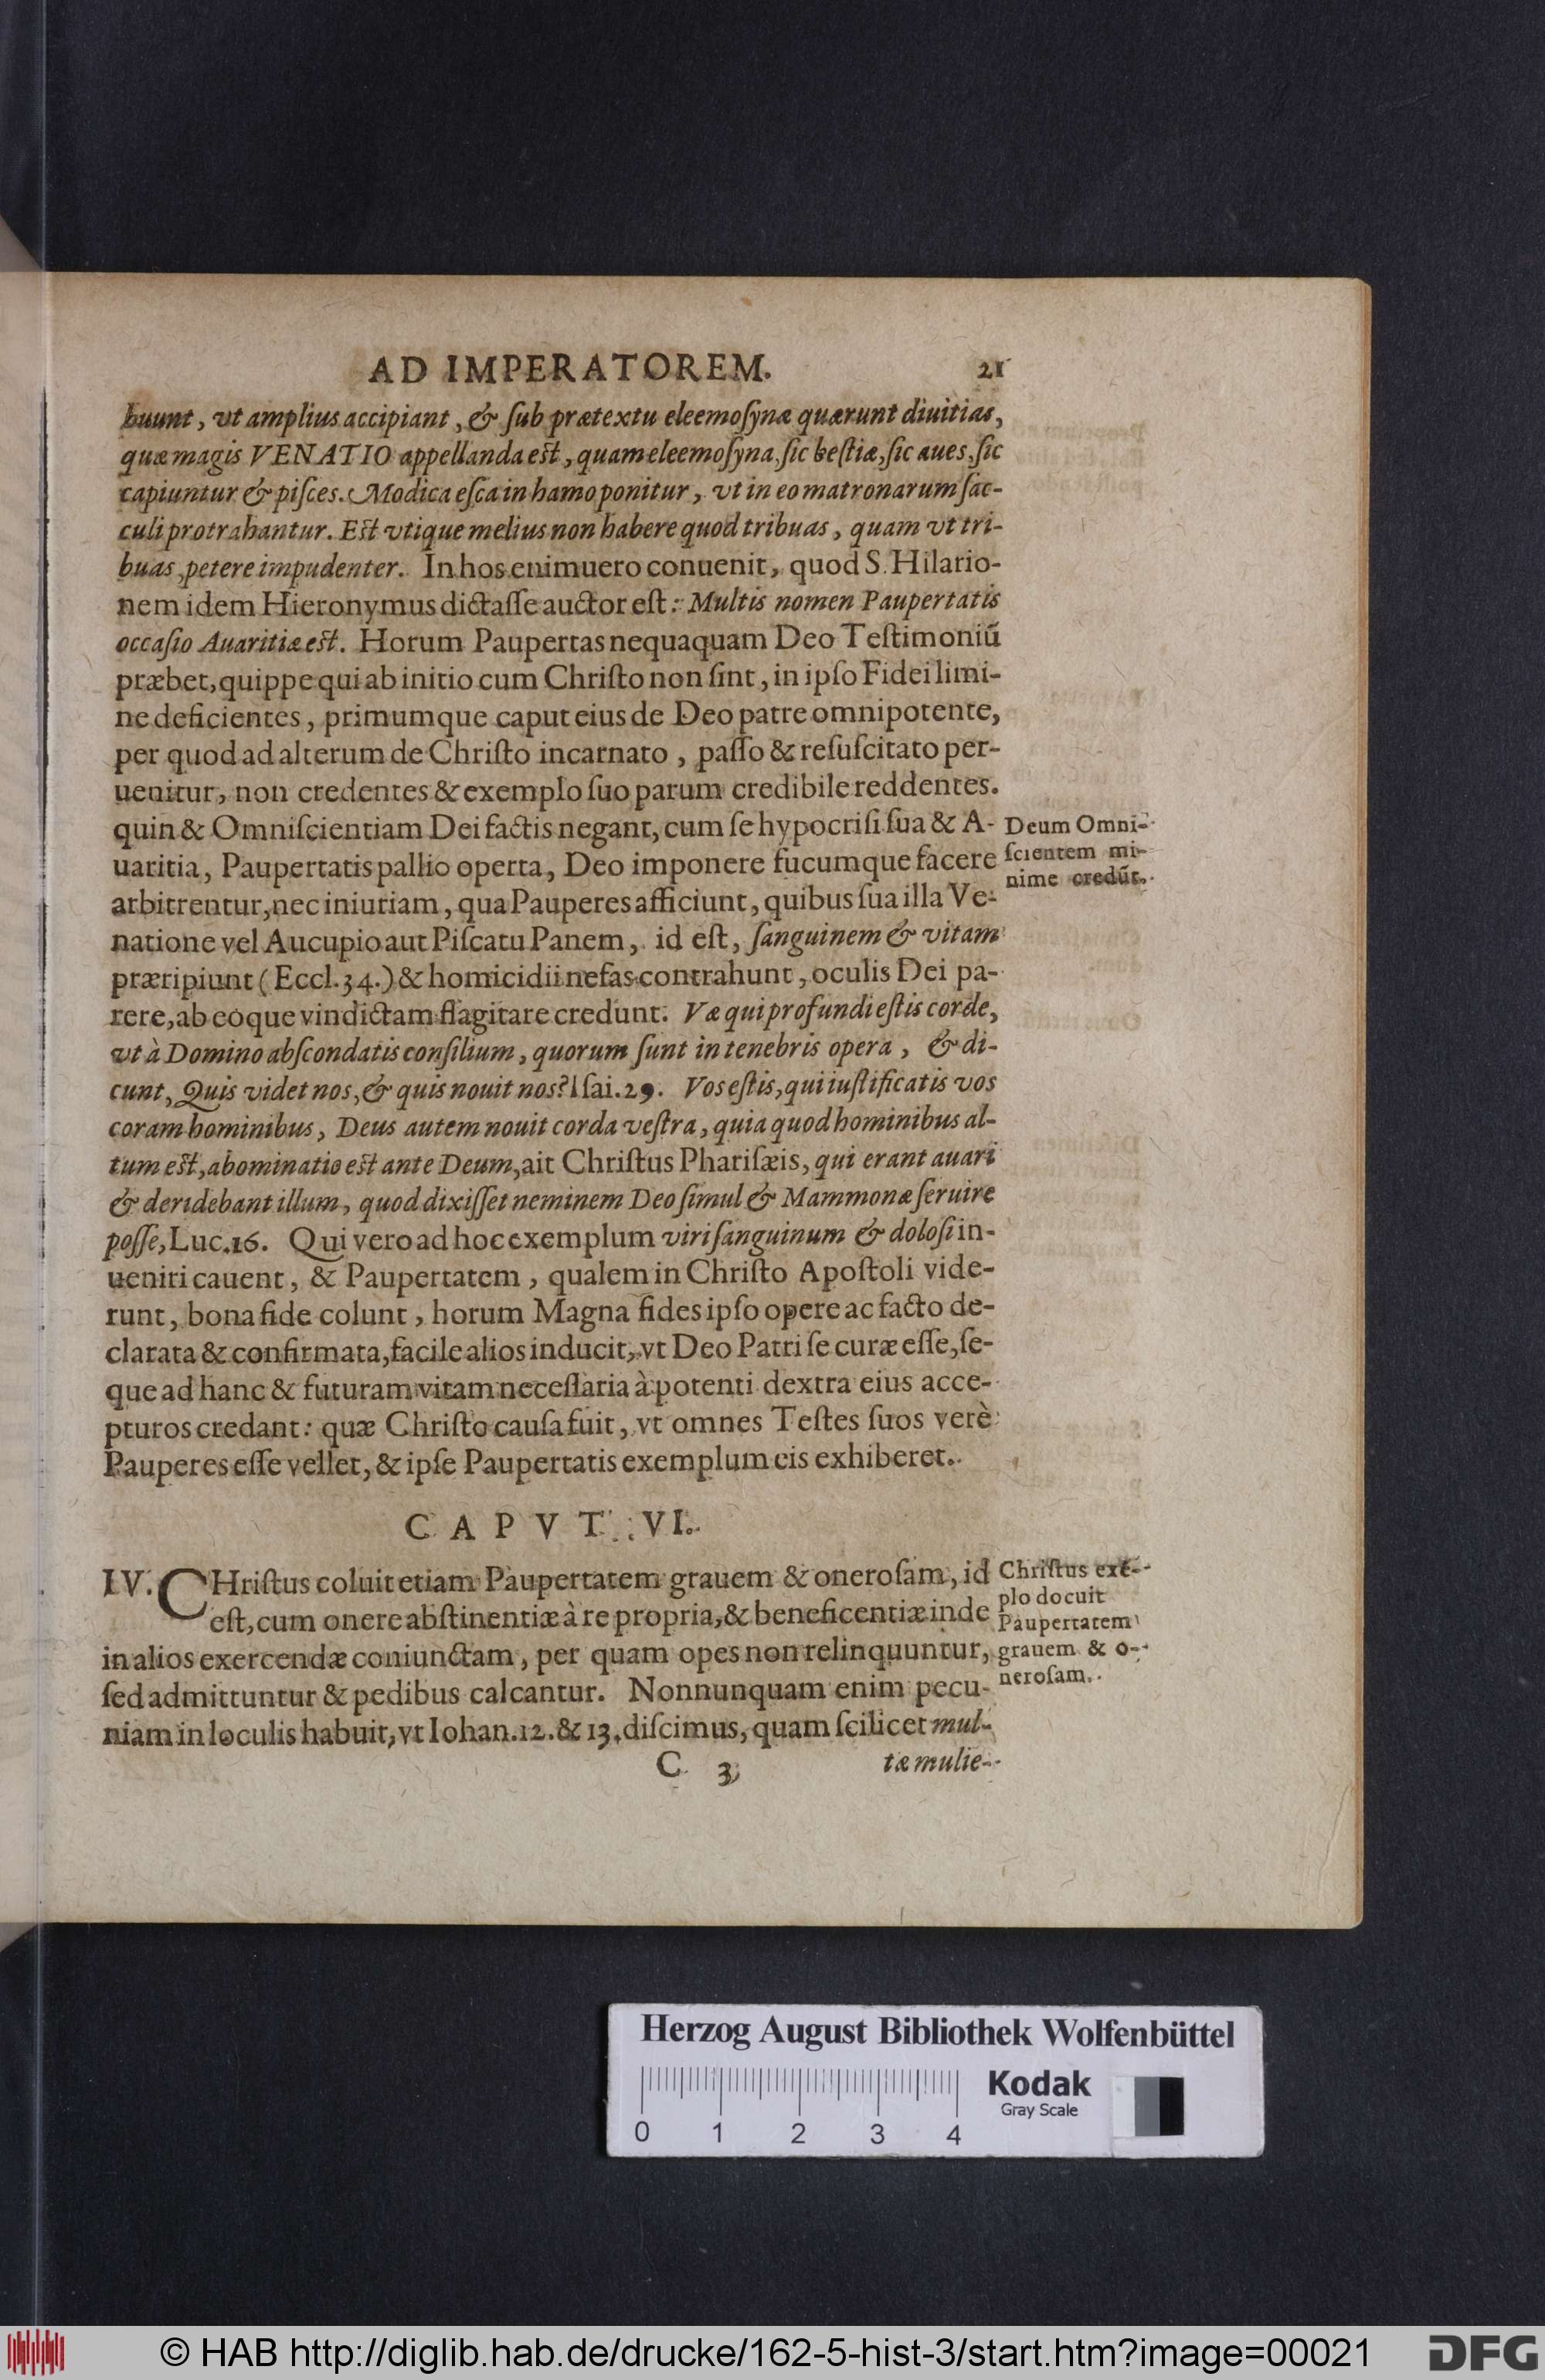 AD IMPERATOREM. 21
buunt, vt amplius accipiant, & ſub prætextu eleemoſynæ quærunt diuitias,
quæ magis VENATIO appellanda eſt, quam eleemoſyna, ſic beſtiæ, ſic aues, ſic
capiuntur & piſces. Modica eſca in hamo ponitur, vt in eo matronarum ſac-
culi protrahantur. Eſt vtique melius non habere quod tribuas, quam vt tri-
buas, petere impudenter. In hos enimuero conuenit, quod S. Hilario-
nem idem Hieronymus dictaſſe auctor eſt: Multis nomen Paupertatis
occaſio Auaritiæ eſt. Horum Paupertas nequaquam Deo Teſtimoniū
præbet, quippe qui ab initio cum Chriſto non ſint, in ipſo Fidei limi-
ne deficientes, primumque caput eius de Deo patre omnipotente,
per quod ad alterum de Chriſto incarnato, paſſo & reſuſcitato per-
uenitur, non credentes & exemplo ſuo parum credibile reddentes.
quin & Omniſcientiam Dei factis negant, cum ſe hypocriſi ſua & A-
uaritia, Paupertatis pallio operta, Deo imponere fucumque facere
arbitrentur, nec iniuriam, qua Pauperes afficiunt, quibus ſua illa Ve-
natione vel Aucupio aut Piſcatu Panem, id eſt, ſanguinem & vitam
præripiunt (Eccl. 34.) & homicidii nefas contrahunt, oculis Dei pa-
rere, ab eoque vindictam flagitare credunt. Væ qui profundi eſtis corde,
vt à Domino abſcondatis conſilium, quorum ſunt in tenebris opera, & di-
cunt, Quis videt nos, & quis nouit nos? Iſai. 29. Vos eſtis, qui iuſtificatis vos
coram hominibus, Deus autem nouit corda veſtra, quia quod hominibus al-
tum eſt, abominatio eſt ante Deum, ait Chriſtus Phariſæis, qui erant auari
& deridebant illum, quod dixiſſet neminem Deo ſimul & Mammonæ ſeruire
poſſe, Luc. 16. Qui vero ad hoc exemplum viri ſanguinum & doloſi in-
ueniri cauent, & Paupertatem, qualem in Chriſto Apoſtoli vide-
runt, bona fide colunt, horum Magna fides ipſo opere ac facto de-
clarata & confirmata, facile alios inducit, vt Deo Patri ſe curæ eſſe, ſe-
que ad hanc & futuram vitam neceſſaria à potenti dextra eius acce-
pturos credant: quæ Chriſto cauſa fuit, vt omnes Teſtes ſuos verè
Pauperes eſſe vellet, & ipſe Paupertatis exemplum eis exhiberet.
Deum Omni-
ſcientem mi-
nime credūt.
CAPVT VI.
IV. CHriſtus coluit etiam Paupertatem grauem & oneroſam, id
eſt, cum onere abſtinentiæ à re propria, & beneficentiæ inde
in alios exercendæ coniunctam, per quam opes non relinquuntur,
ſed admittuntur & pedibus calcantur. Nonnunquam enim pecu-
niam in loculis habuit, vt Iohan. 12. & 13. diſcimus, quam ſcilicet mul-
Chriſtus exē-
plo docuit
Paupertatem
grauem & o-
neroſam.
C 3 tæ mulie-
Herzog August Bibliothek Wolfenbüttel
Kodak
Gray Scale
0 1 2 3 4
© HAB http://diglib.hab.de/drucke/162-5-hist-3/start.htm?image=00021
DFG